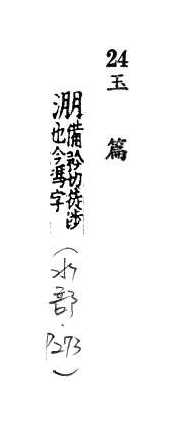 24 玉篇
淜備矜切徒涉也今馮字
(水部.P.273)